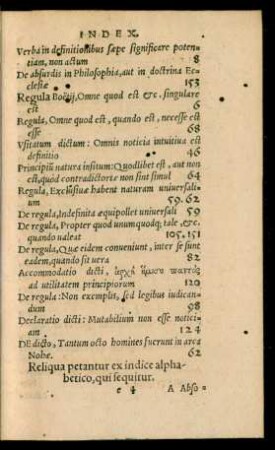 INDEX.
Verba in definitionibus sæpe significare poten-
tiam, non actum 8
De absurdis in Philosophia, aut in doctrina Ec-
clesiæ 153
Regula Boëtij, Omne quod est &c. singulare
est 6
Regula, Omne quod est, quando est, necesse est
esse 68
Vsitatum dictum: Omnis noticia intuitiua est
definitio 46
Principiũ natura insitum: Quodlibet est, aut non
est, quod contradictoriæ non sint simul 64
Regula, Exclusiuæ habent naturam uniuersali-
um 59. 62
De regula, Indefinita equipollet uniuersali 59
De regula, Propter quod unumquodq; tale, &c.
quando ualeat 105. 151
De regula, Quæ eidem conueniunt, inter se sunt
eadem, quando sit uera 82
Accommodatio dicti,
ad utilitatem principiorum 120
De regula: Non exemplis, sed legibus iudican-
dum 98
Declaratio dicti: Mutabilium non esse notici-
am 124
DE dicto, Tantum octo homines fuerunt in arca
Nohe. 62
Reliqua petantur ex indice alpha-
betico, qui sequitur.
e 4 A Abso